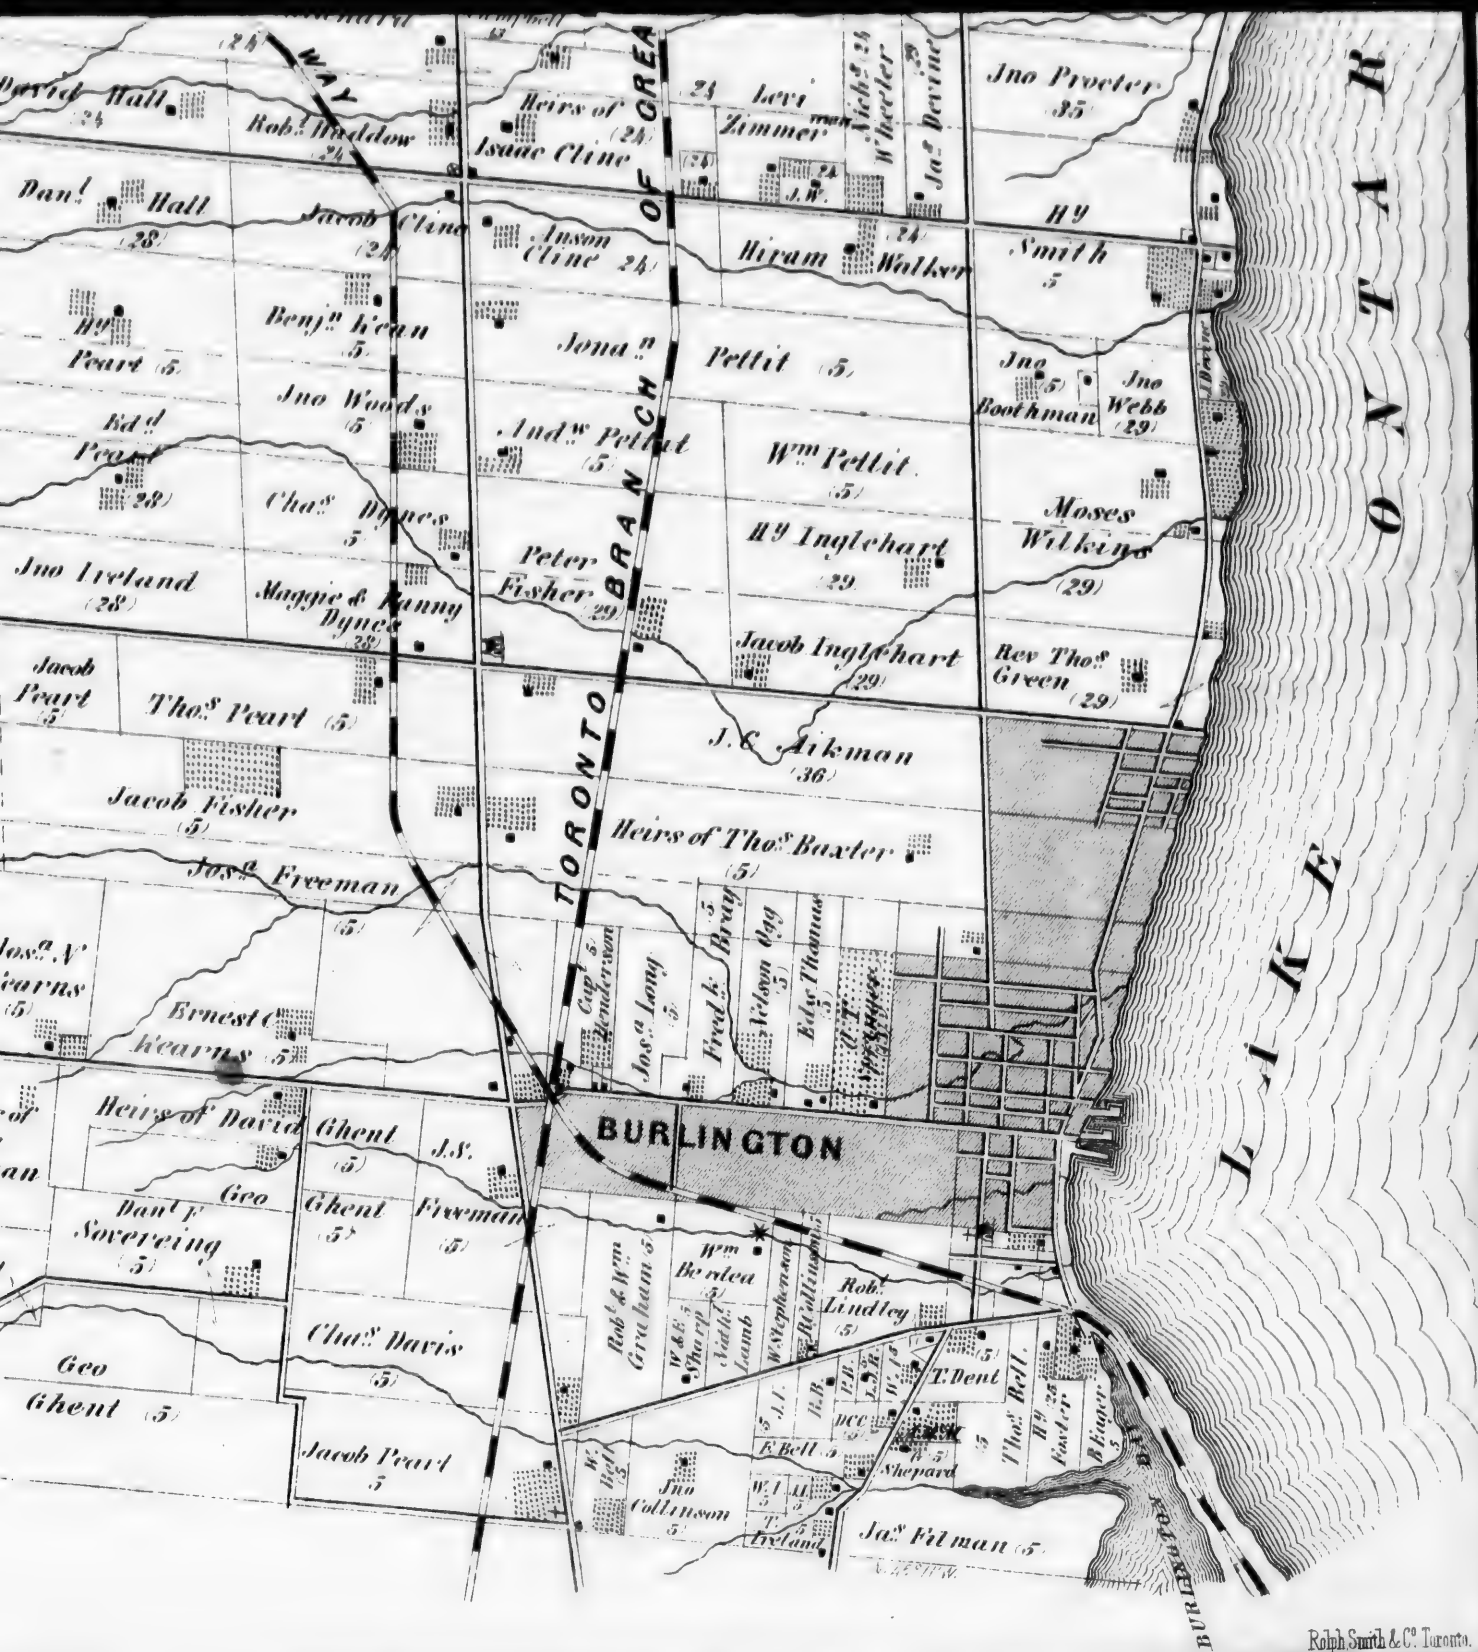 WAY
TORONTO BRANCH OF GREA
LAKE ONTAR
David Hall
24
Robt Haddow
24
Heirs of
(24)
Isaac Cline
24
Levi
Zimmerman
(24)
24
J.W.
Nichs 24
Wheeler
Jas Devine 29
Jno Procter
35
Danl Hall
(28)
Jacob Cline
(24)
Anson
Cline 24
Hiram Walker
(24)
Hy
Smith
5
Hy
Peart (5)
Benjn Kean
5
Jonan Pettit (5)
Jno
(5)
Boothman
Jno
Webb
(29)
J. Devine
Edd
Peart
(28)
Jno Woods
(5)
Andw Pettit
(5)
Wm Pettit.
(5)
Chas Dynes
5
Peter
Fisher
(29)
Hy Inglehart
(29)
Moses
Wilkins
(29)
Jno Ireland
(28)
Maggie & Fanny
Dynes
(28)
Jacob Inglehart
(29)
Rev Thos
Green
(29)
Jacob
Peart
(5)
Thos Peart (5)
J. C. Aikman
(36)
Jacob Fisher
(5)
Heirs of Thos Baxter
(5)
Josa Freeman
(5)
Josa N
earns
(5)
Ernest C
Kearns (5)
Capt 5
Henderson
Josa Long
5
Fredk Bray 5
Nelson Ogg
5
Edse Thomas
5
BURLINGTON
of
an
Heirs of David Ghent
(5)
J.S.
Freeman
(5)
Geo Ghent
5
Danl F
Sovereing
(5)
Robt & Wm
Graham 5
Wm
Berdea
(5)
W & E 5
Sharp
Nathl
Lamb
W. Stephenson
R Collinson 5
Robt
Lindley
(5)
Chas Davis
(5)
Geo
Ghent (5)
Jacob Peart
5
W.
Bell
5
Jno
Collinson
5
J.I.
5
R.B.
P.B.
J.R.
W. 15
DCC
F Bell 5
W.I
5
T.
Ireland
5
(5)
T. Dent
Shepard
5
Thos Bell.
5
Hy 25
Foster
B Eager
5
Jas Filman (5)
BURLINGTON BAY
Rolph, Smith & Co. Toronto.